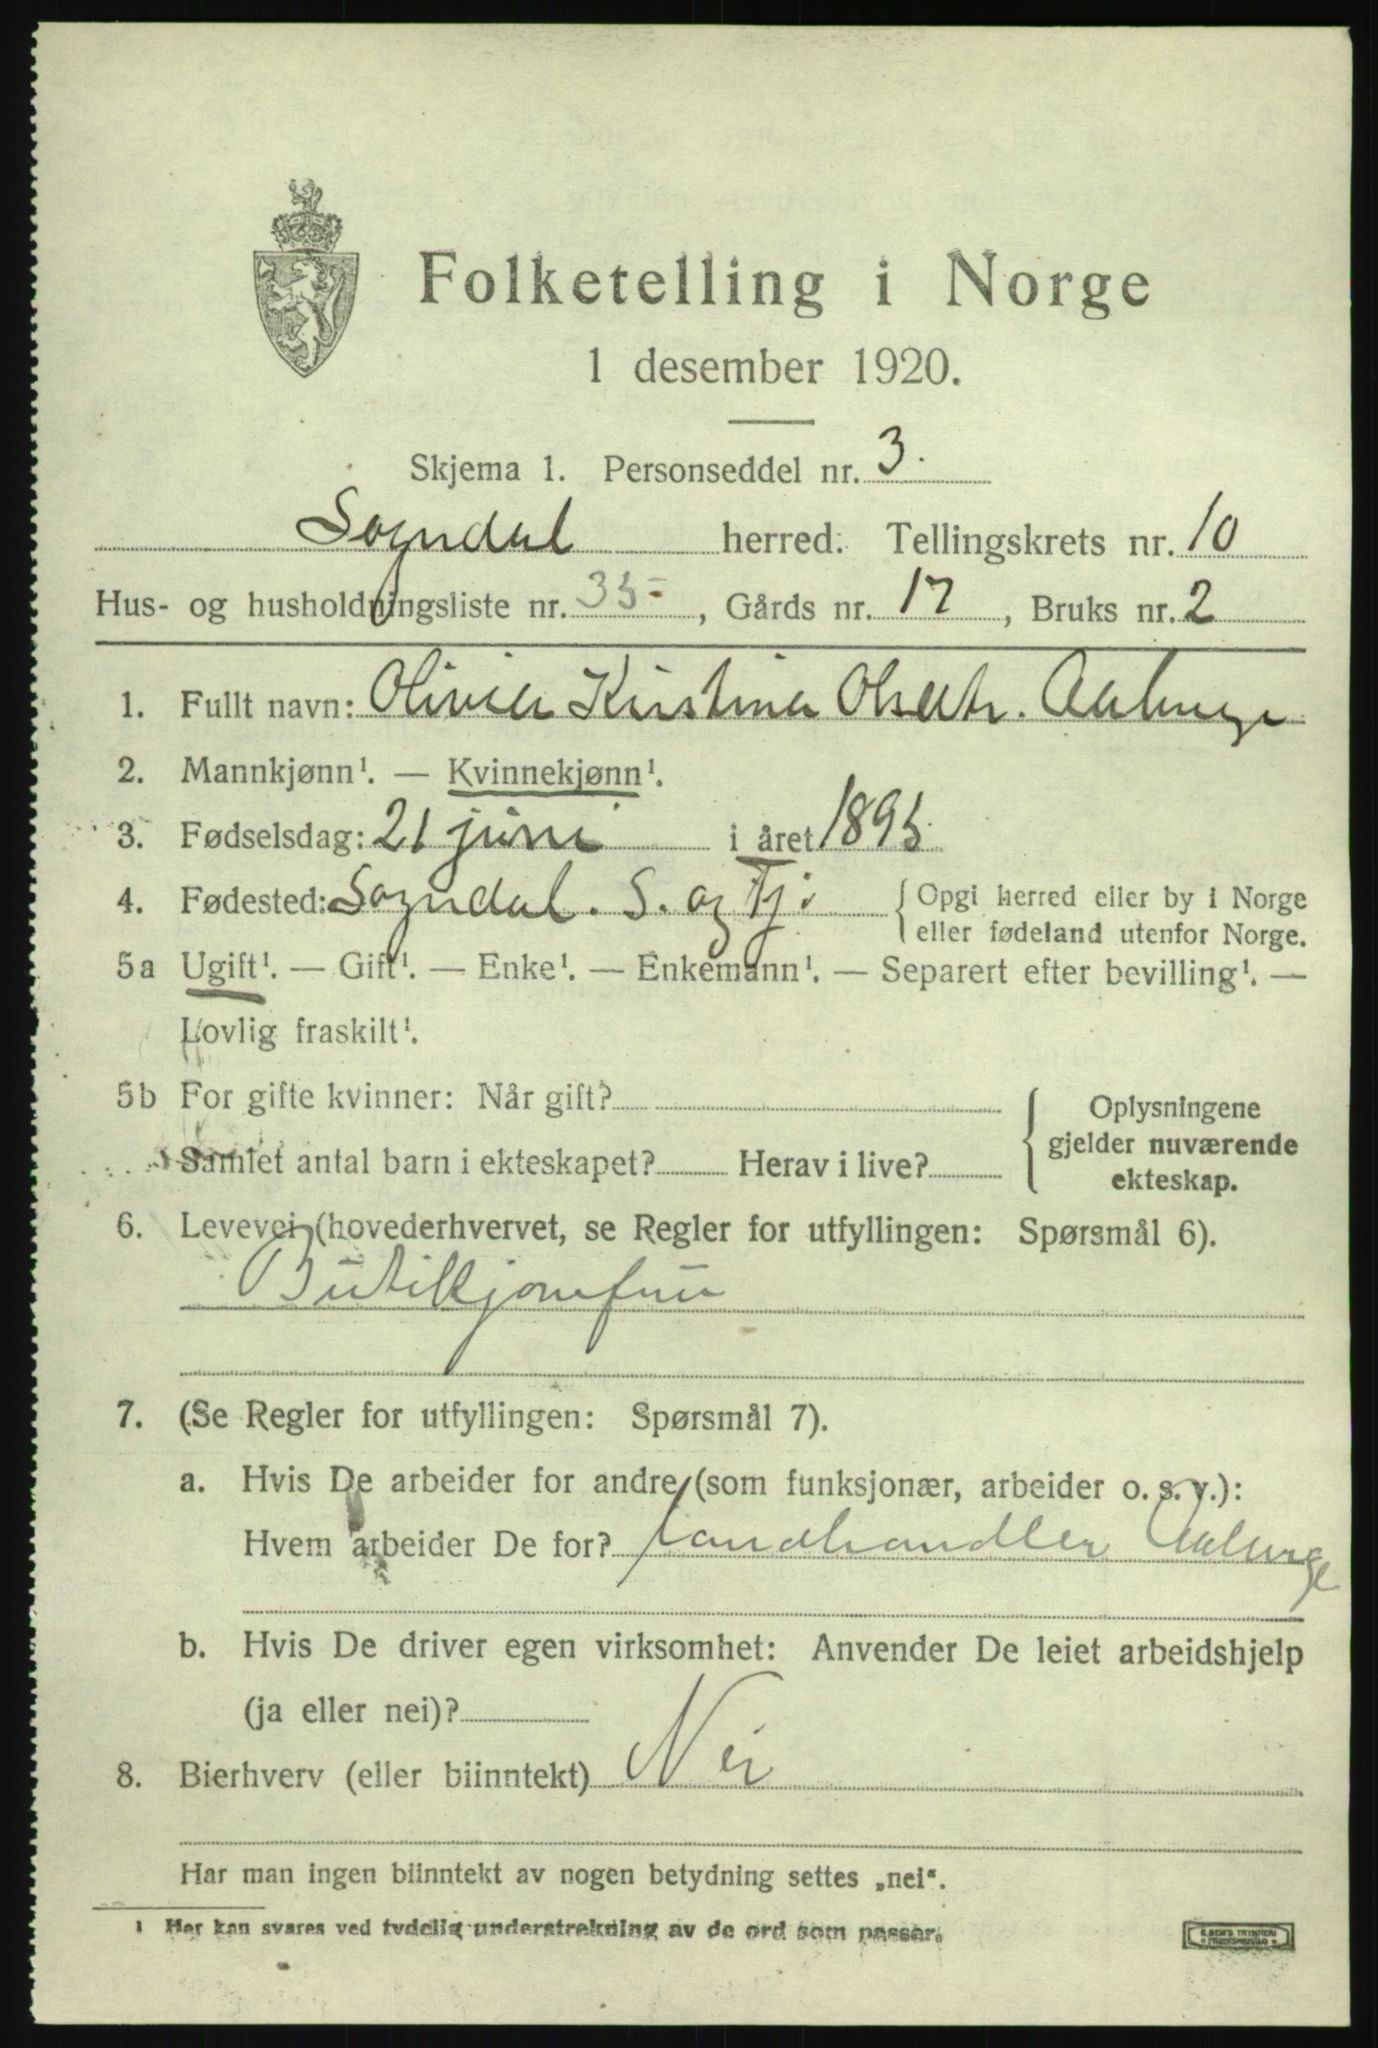 Folketelling i Norge
1 desember 1920.
Skjema 1. Personseddel nr. 3.
Sogndal herred. Tellingskrets nr. 10
Hus- og husholdningsliste nr. 35, Gårds nr. 17, Bruks nr. 2
1. Fullt navn: Olivia Kristina Olsdtr. Aaberge
2. Mannkjønn¹. — Kvinnekjønn¹.
3. Fødselsdag: 21 juni i året 1895
4. Fødested: Sogndal. S. og Fj. { Opgi herred eller by i Norge
eller fødeland utenfor Norge.
5a Ugift¹. — Gift¹. — Enke¹. — Enkemann¹. — Separert efter bevilling¹. —
Lovlig fraskilt¹.
5b For gifte kvinner: Når gift?
Samlet antal barn i ekteskapet? Herav i live?
{ Oplysningene
gjelder nuværende
ekteskap.
6. Levevei (hovederhvervet, se Regler for utfyllingen: Spørsmål 6).
Butikjomfru
7. (Se Regler for utfyllingen: Spørsmål 7).
a. Hvis De arbeider for andre (som funksjonær, arbeider o. s. v.):
Hvem arbeider De for? Landhandler Aaberge
b. Hvis De driver egen virksomhet: Anvender De leiet arbeidshjelp
(ja eller nei)?
8. Bierhverv (eller biinntekt) Nei
Har man ingen biinntekt av nogen betydning settes „nei“.
¹ Her kan svares ved tydelig understrekning av de ord som passer.